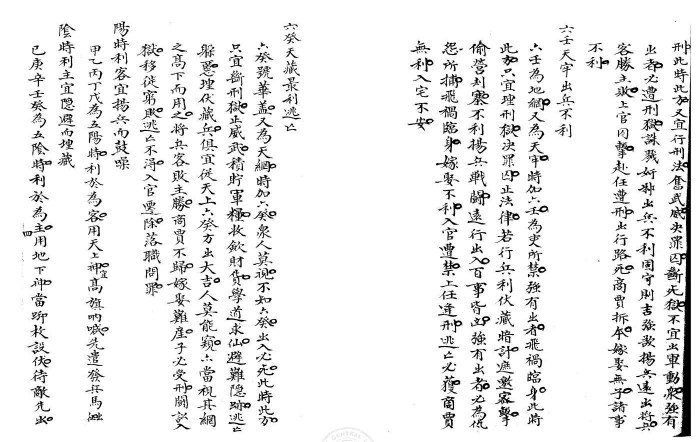 刑此時此方又宜行刑法奮武威决罪囚斷死獄不宜出軍動衆強有
出者必遭刑獄誅戮奸邪出兵不利固守則吉強敵揚兵遠出將兵
客勝主敗上官囚擊赴任遭刑出行路死商賈折本嫁娶無子諸事
不利
六壬天牢出兵不利
六壬為地網又為天牢時加六壬為吏所禁強有出者飛禍臨身此時
此方只宜理刑獄决罪囚正法律若行兵利伏藏暗計遮邀客擊
偷營刦寨不利揚兵戰鬪遠行出入百事皆凶強有出者必為仇
怨所捕飛禍臨身嫁娶不利入官遭禁上任逢刑逃亡必獲商賈
無利入宅不安
六癸天藏最利逃亡
六癸號華盖又為天網時加六癸衆人莫視不知六癸出入必死此時此方
只宜斷刑獄正威武積貯軍糧收斂財貨學道求仙避難隱跡逃亡
躲惡埋伏藏兵俱宜從天上六癸方出大吉人莫能窺亦當視其網
之高下而用之將兵客敗主勝商賈不歸嫁娶難產子必受刑鬪訟入
獄移徙窮敗逃亡不淂入官遷除落職問罪
陽時利客宜揚兵而鼓噪
甲乙丙丁戊為五陽時利於為客用天上神宜高旗吶喊先遣發兵馬
陰時利主宜隱避而埋藏
己庚辛壬癸為五陰時利於為主用地下神當啣枚設伏待敵先出